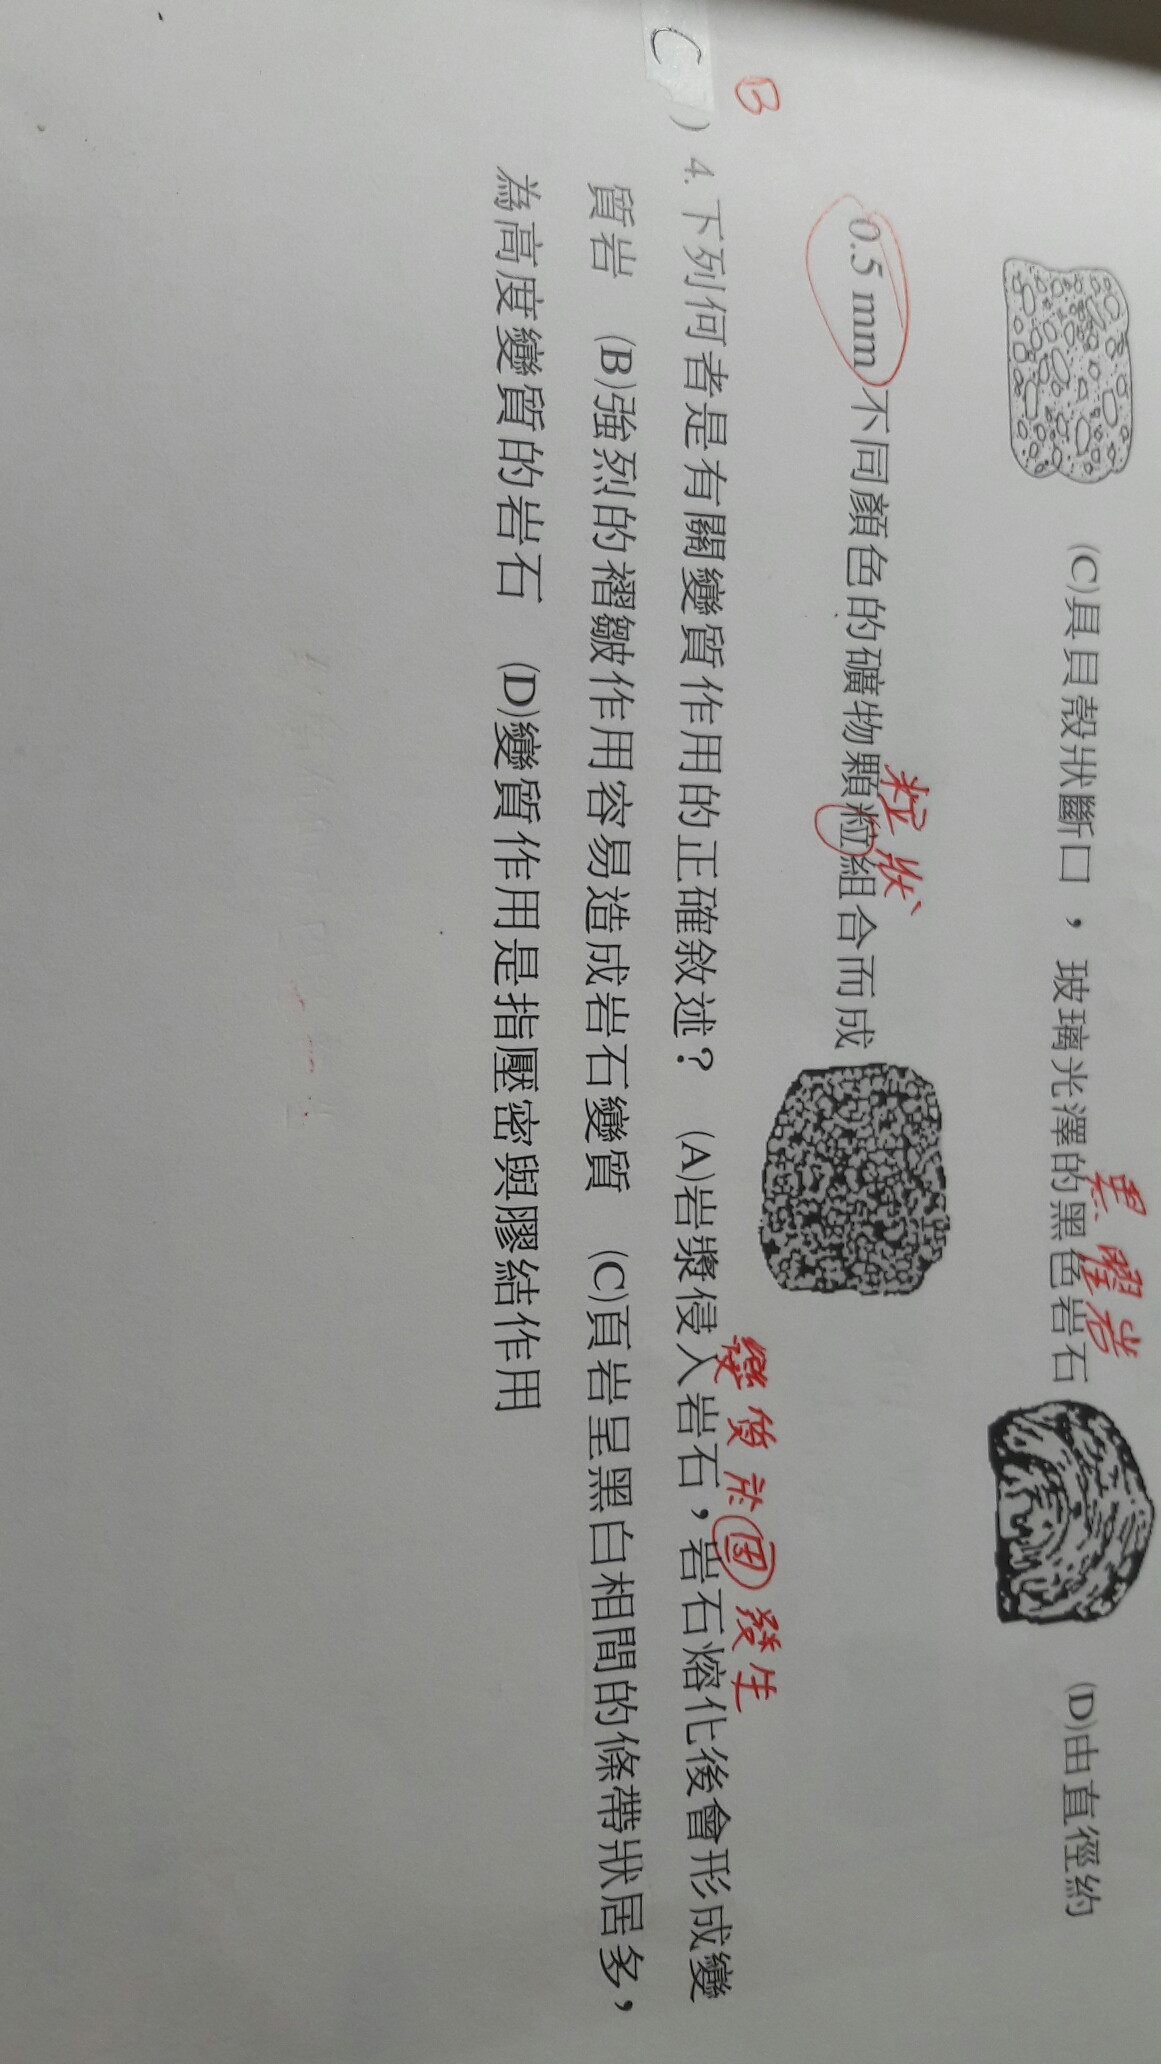 (C)具貝殼狀斷口，玻璃光澤的黑色岩石 (D)由直徑約
黑曜岩
0.5 mm 不同顏色的礦物顆粒組合而成
粒狀
B
C
) 4. 下列何者是有關變質作用的正確敘述？ (A)岩漿侵入岩石，岩石熔化後會形成變
變質於固發生
質岩 (B)強烈的褶皺作用容易造成岩石變質 (C)頁岩呈黑白相間的條帶狀居多，
為高度變質的岩石 (D)變質作用是指壓密與膠結作用